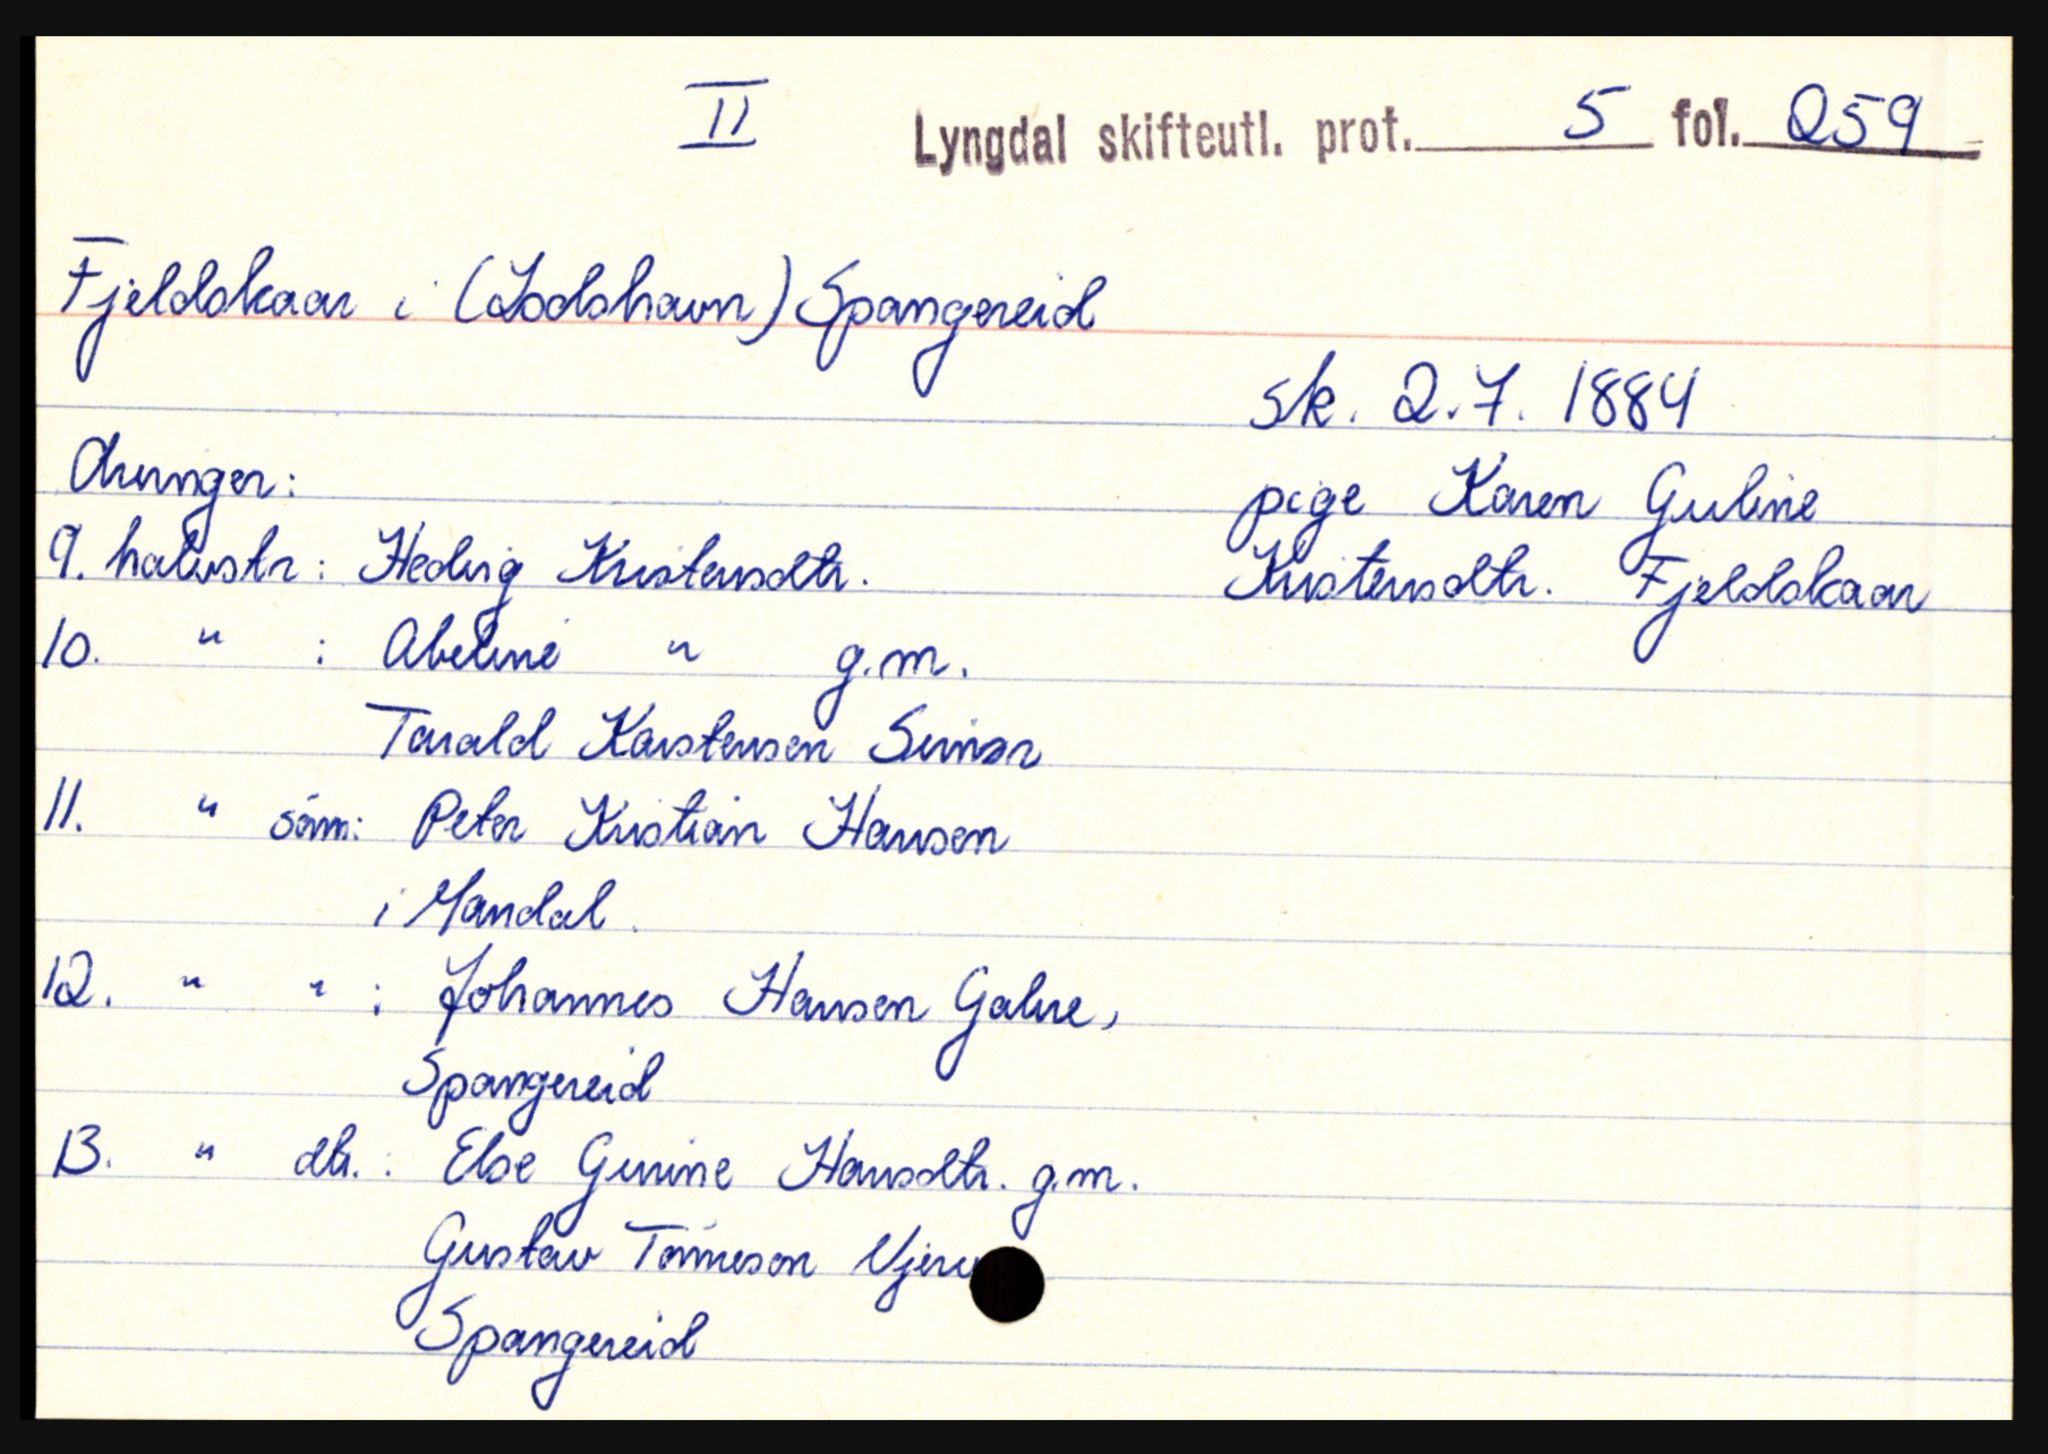 II
Lyngdal skifteutl. prot. 5 fol. 259
Fjeldskaar i (Lodshavn) Spangereid
sk. 2.7. 1884
pige Karen Guline
Kristensdtr. Fjeldskaar
Arvinger:
9. halvstr: Hedvig Kristensdtr.
10. " : Abeline " g.m.
Tarald Karstensen
11. " søn: Peter Kristian Hansen
i Mandal.
12. " " : Johannes Hansen Gahre,
Spangereid
13. " dtr. : Else Gurine Hansdtr. g.m.
Gustav Tønneson
Spangereid